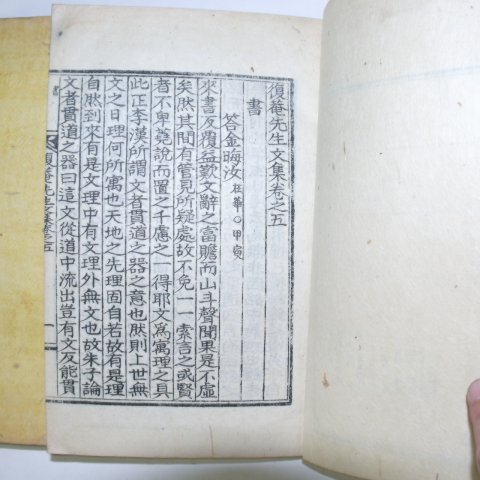 復菴先生文集卷之五
書
答金晦汝 在華○甲寅
來書反覆益歎文辭之富贍而山斗聲聞果是不虛
矣然其間有管見所疑處故不免一一索言之或賢
者不卑蕘說而置之千慮之一得耶文爲寓理之具
此正李漢所謂文者貫道之器之意也然則上世無
文之日理何所寓也天地之先理固自若故有是理
自然到來有是文理中有文理外無文也故朱子論
文者貫道之器曰這文從道中流出豈有文反能貫
復菴先生文集卷之五
一